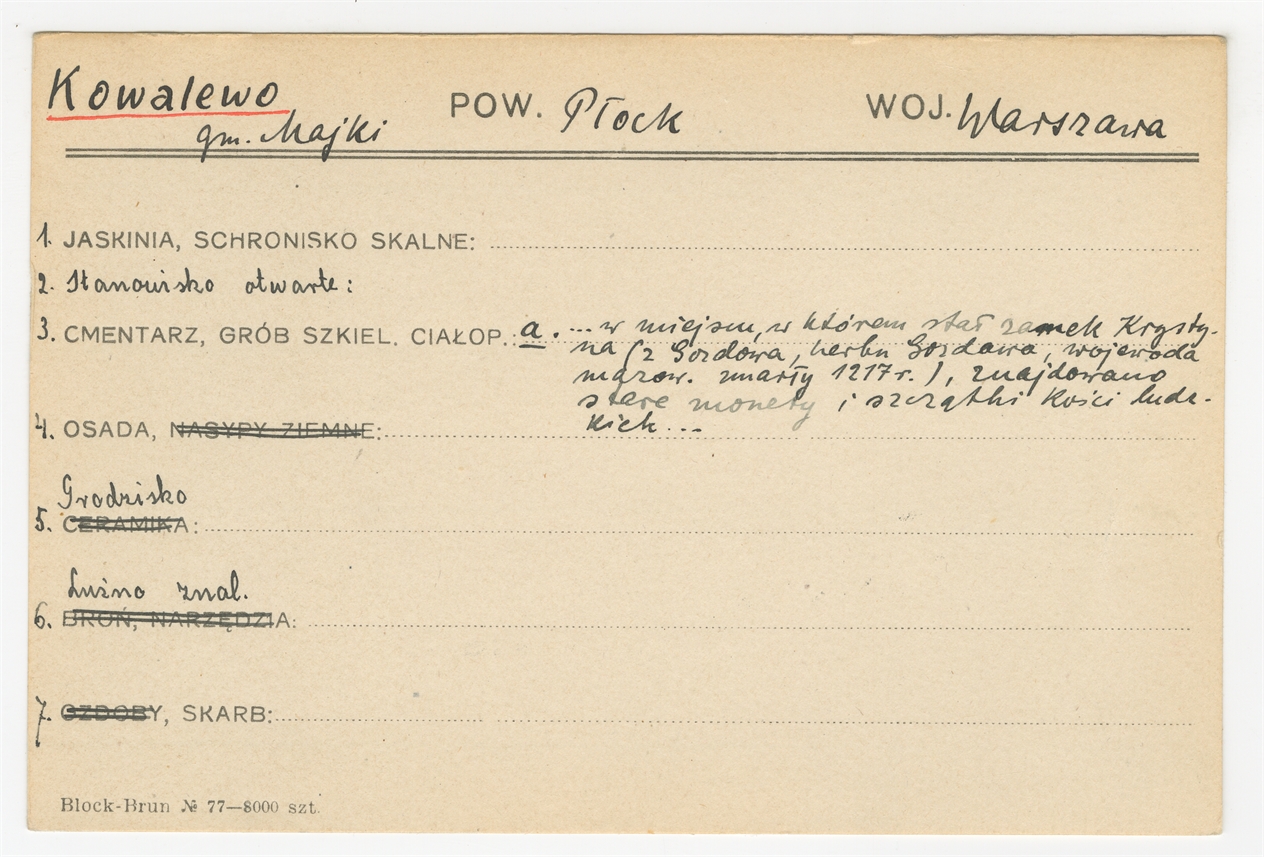 Kowalewo POW. Płock WOJ. Warszawa
gm. Majki
1. JASKINIA, SCHRONISKO SKALNE:
2. Stanowisko otwarte:
3. CMENTARZ, GRÓB SZKIEL. CIAŁOP.: a. ... w miejscu, w którem stał zamek Krysty-
na (z Gozdowa, herbu Gozdawa, wojewoda
mazow. zmarły 1217 r.), znajdowano
stare monety i szczątki kości ludz-
kich...
4. OSADA, NASYPY ZIEMNE:
Grodzisko
5. CERAMIKA:
Luźno znal.
6. BROŃ, NARZĘDZIA:
7. OZDOBY, SKARB:
Block-Brun № 77—8000 szt.